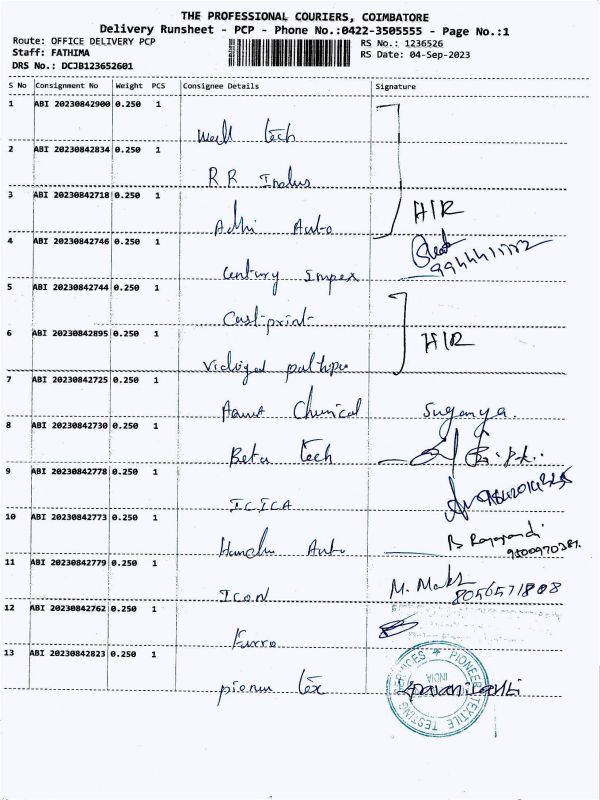 THE PROFESSIONAL COURIERS, COIMBATORE
Delivery Runsheet - PCP - Phone No.:0422-3505555 - Page No.:1
Route: OFFICE DELIVERY PCP RS No.: 1236526
Staff: FATHIMA RS Date: 04-Sep-2023
DRS No.: DCJB123652601
S No Consignment No Weight PCS Consignee Details Signature
1 ABI 20230842900 0.250 1
well tech
2 ABI 20230842834 0.250 1
R R Indus
3 ABI 20230842718 0.250 1
Adhi Auto H/R
4 ABI 20230842746 0.250 1
Century Impex
5 ABI 20230842744 0.250 1
Cast-print-
6 ABI 20230842895 0.250 1 H/R
7 ABI 20230842725 0.250 1
Chemical Suganya.
8 ABI 20230842730 0.250 1
Beta tech
9 ABI 20230842778 0.250 1
ICICA
10 ABI 20230842773 0.250 1
Auto
11 ABI 20230842779 0.250 1
Icon 8056571808
12 ABI 20230842762 0.250 1
13 ABI 20230842823 0.250 1
tex
PIONEER TEXTILE TESTING SERVICES
INDIA